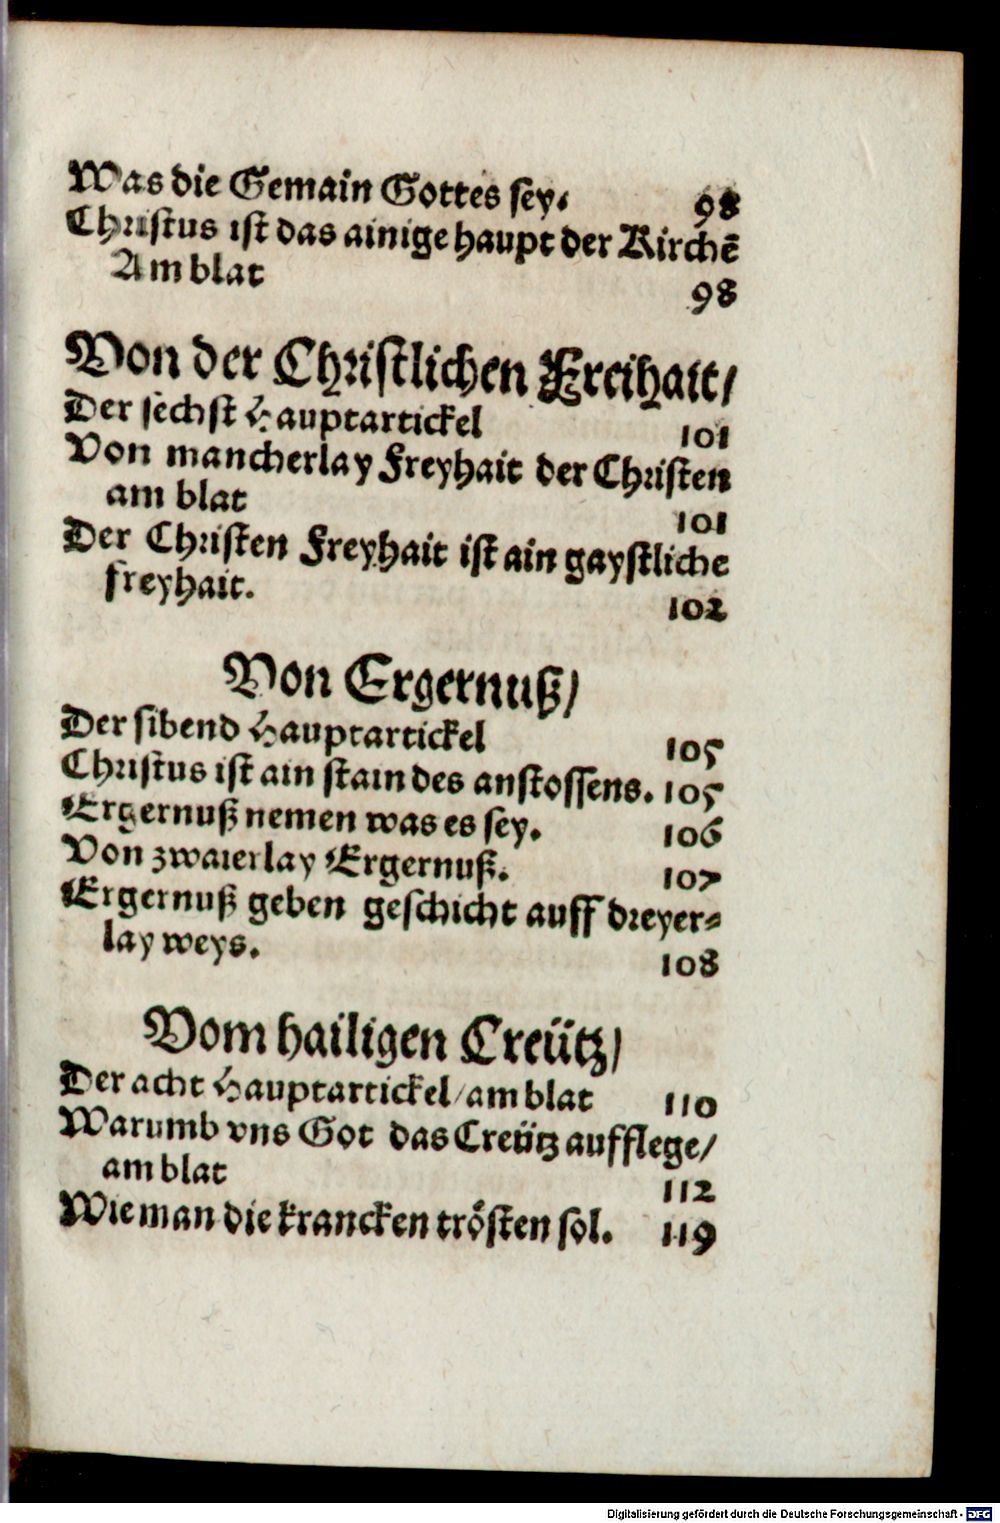 Was die Gemain Gottes sey. 98
Christus ist das ainige haupt der Kirchē
Am blat 98
Von der Christlichen Freihait/
Der sechst Hauptartickel 101
Von mancherlay Freyhait der Christen
am blat 101
Der Christen Freyhait ist ain gaystliche
freyhait. 102
Von Ergernuß/
Der sibend Hauptartickel 105
Christus ist ain stain des anstossens. 105
Ergernuß nemen was es sey. 106
Von zwaierlay Ergernuß. 107
Ergernuß geben geschicht auff dreyer-
lay weys. 108
Vom hailigen Creütz/
Der acht Hauptartickel/am blat 110
Warumb vns Got das Creütz aufflege/
am blat 112
Wie man die krancken trösten sol. 119
Digitalisierung gefördert durch die Deutsche Forschungsgemeinschaft - DFG